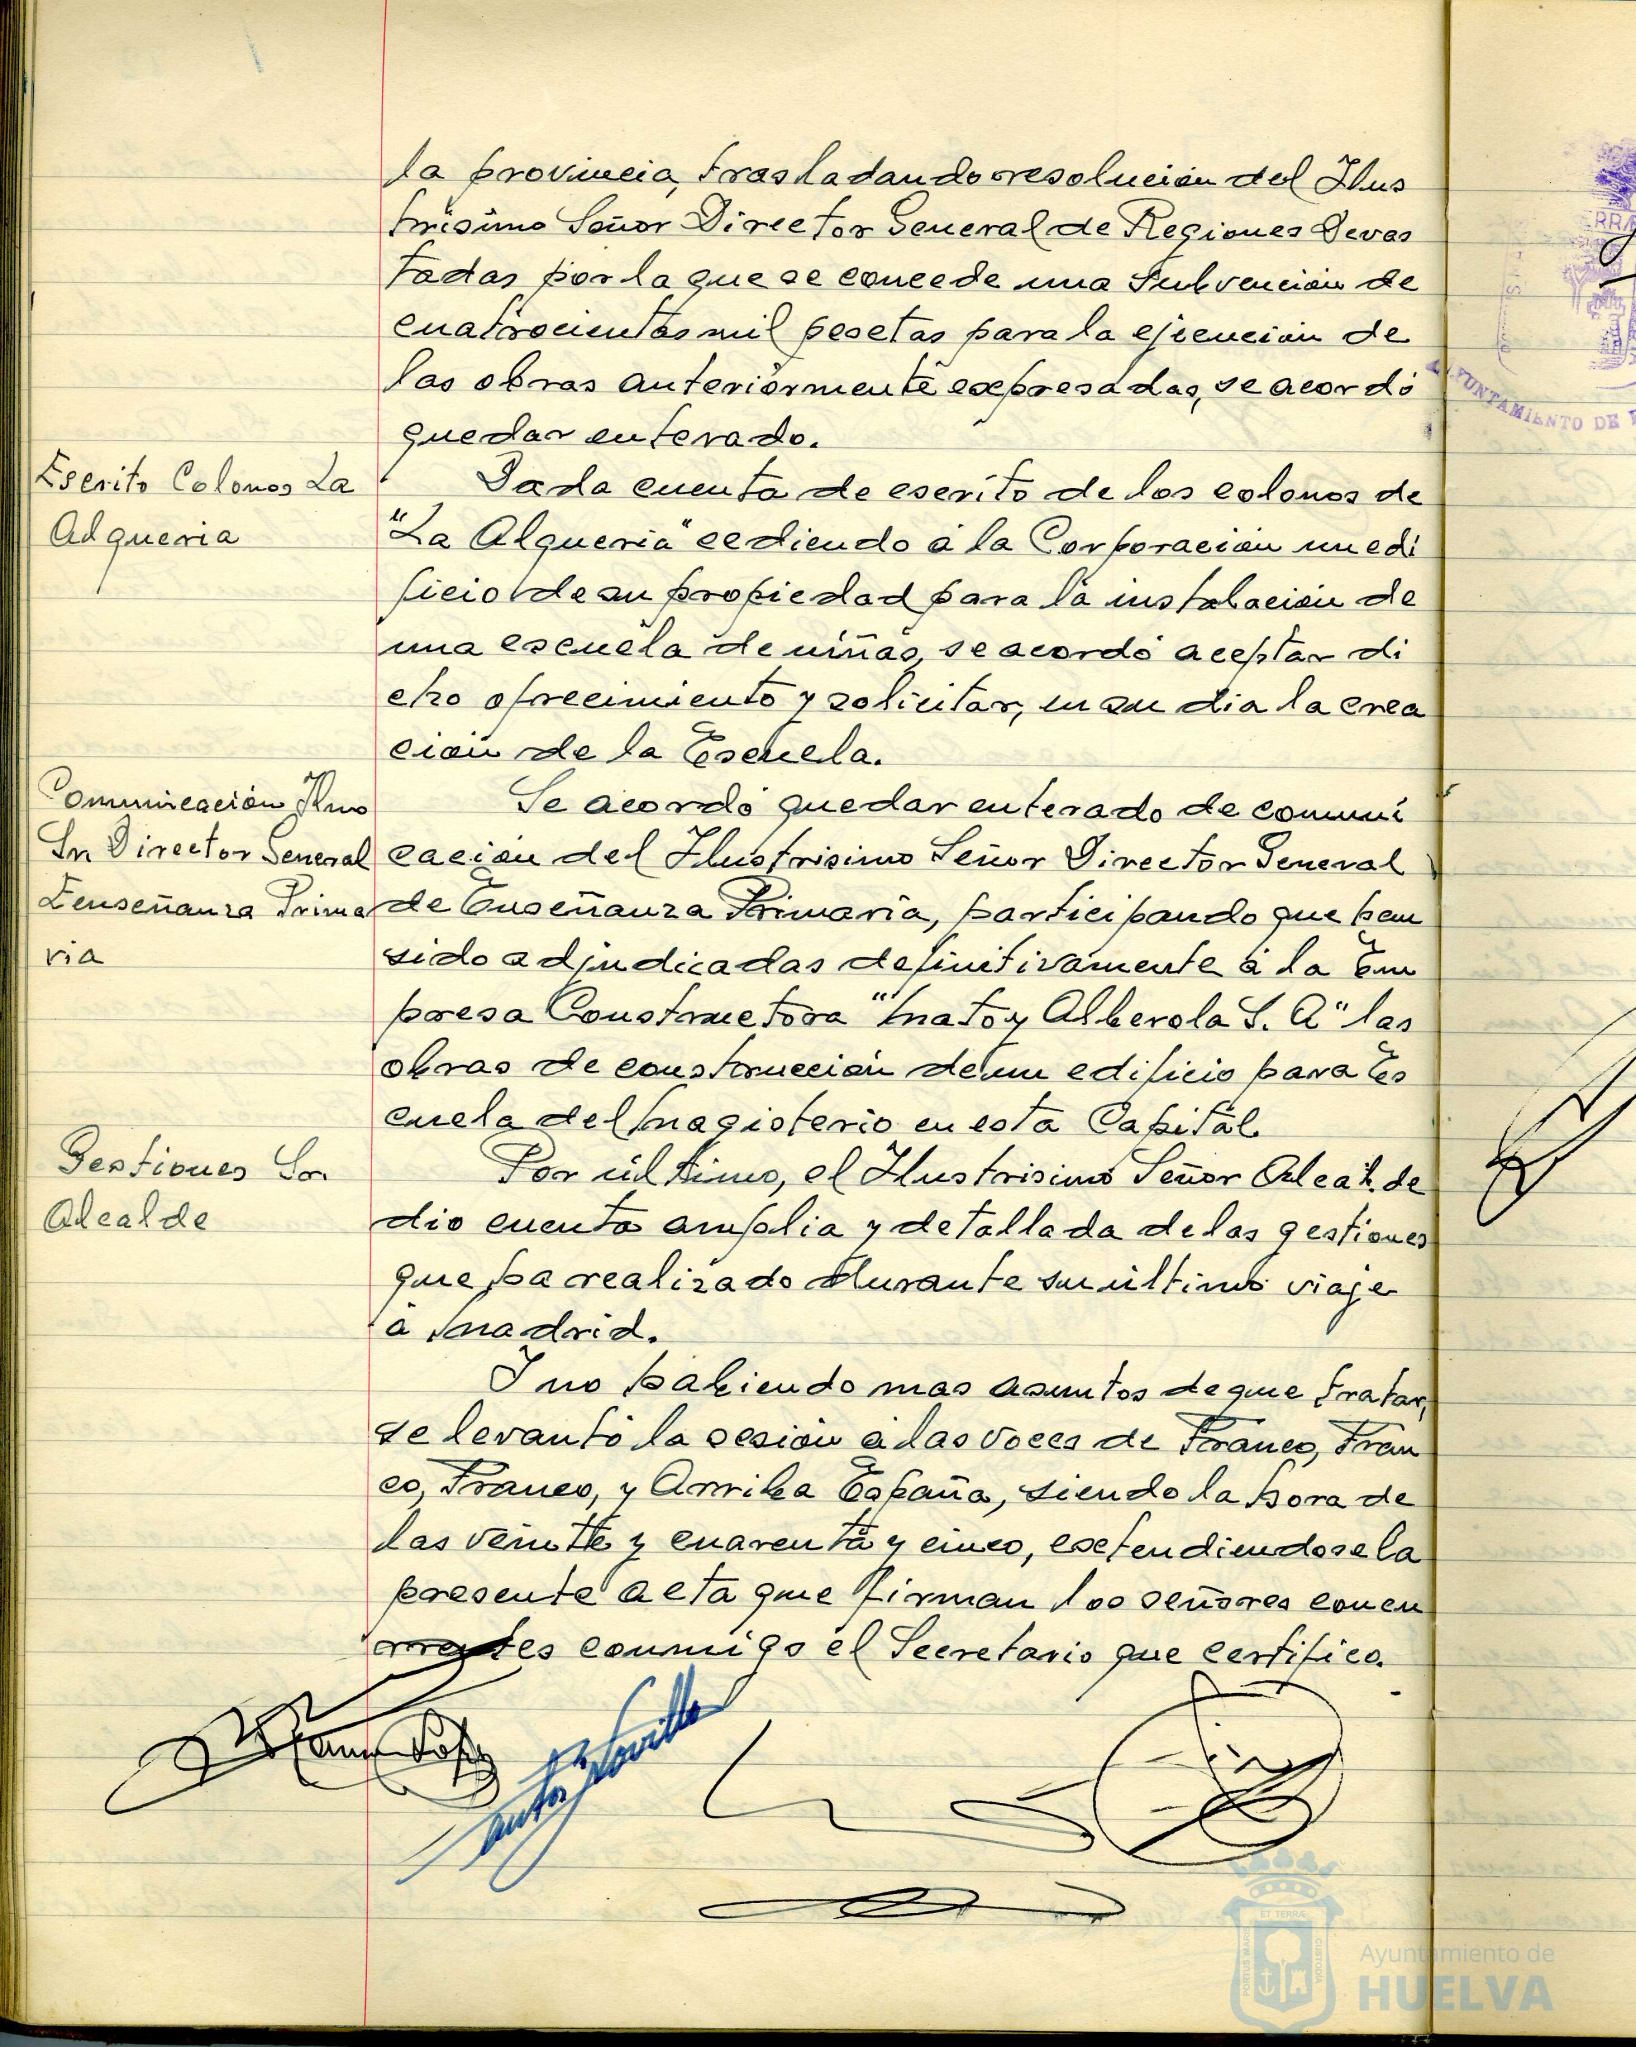 la provincia, trasladando resolución del Ilus
trisimo Señor Director General de Regiones Devas
tadas por la que se concede una Subvención de
cuatrocientas mil pesetas para la ejecución de
las obras anteriormente expresadas, se acordó
quedar enterado.
Escrito Colonos La
Alqueria
Dada cuenta de escrito de los colonos de
"La Alqueria" cediendo á la Corporación un edi
ficio de su propiedad para la instalación de
una escuela de niñas, se acordó aceptar di
cho ofrecimiento y solicitar, en su dia la crea
ción de la Escuela.
Comunicación Ilmo
Sr Director General
Enseñanza Prima
ria
Se acordó quedar enterado de comuni
cación del Ilustrisimo Señor Director General
de Enseñanza Primaria, participando que han
sido adjudicadas definitivamente á la Em
presa Constructora "Mato y Alberola S. A" las
obras de construcción de un edificio para Es
cuela del Magisterio en esta Capital.
Gestiones Sr.
Alcalde
Por último, el Ilustrisimo Señor Alcalde
dio cuenta amplia y detallada de las gestiones
que ha realizado durante su último viaje
á Madrid.
Y no habiendo mas asuntos de que tratar,
se levantó la sesión á las voces de Franco, Fran
co, Franco, y Arriba España, siendo la hora de
las veinte y cuarenta y cinco, extendiendose la
presente acta que firman los señores concu
rrentes conmigo el Secretario que certifico.
AYUNTAMIENTO DE
ET TERRÆ
PORTUS MARIS
CUSTODIA
Ayuntamiento de
HUELVA